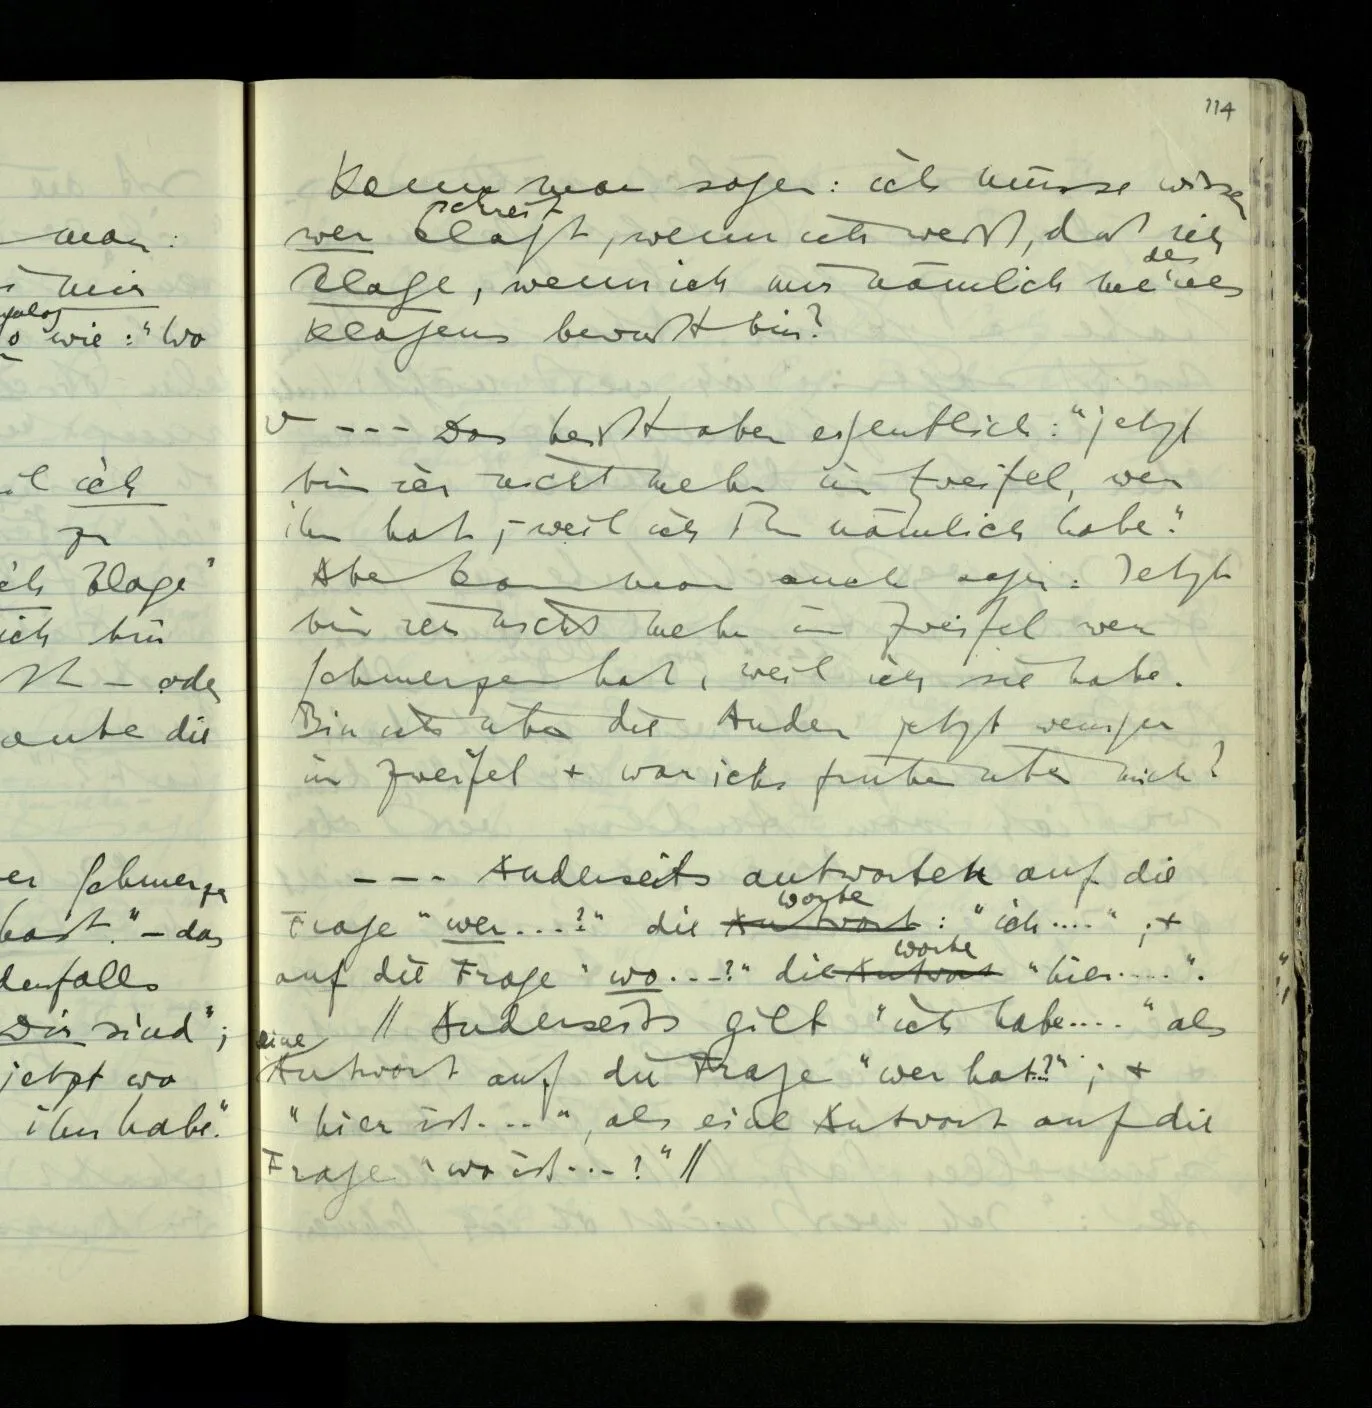 114
man:
mir
wie: "Wo
ich
zu
ich klage"
ich bin
– oder
die
er Schmerze
hast." – das
denfalls
Dir sind";
jetzt wo
ihn habe."
Kann man sagen: ich müsse wissen
schreit
wer klagt, wenn ich weiß, daß ich
des
klage, wenn ich mir nämlich meines
Klagens bewußt bin?
v --- Das heißt aber eigentlich: "jetzt
bin ich nicht mehr im Zweifel, wer
ihn hat, – weil ich ihn nämlich habe."
Aber kann man auch sagen: Jetzt
bin ich nicht mehr im Zweifel wer
Schmerzen hat, weil ich sie habe.
Bin ich über die Andern jetzt weniger
im Zweifel + war ichs früher über mich?
--- Anderseits antworten auf die
Worte
Frage "wer....?" die Antwort: "ich....", +
Worte
auf die Frage "wo...?" die Antwort "hier.....".
// Anderseits gilt "ich habe...." als
eine
Antwort auf die Frage "wer hat..?"; +
"hier ist....", als eine Antwort auf die
Frage "wo ist...?" //